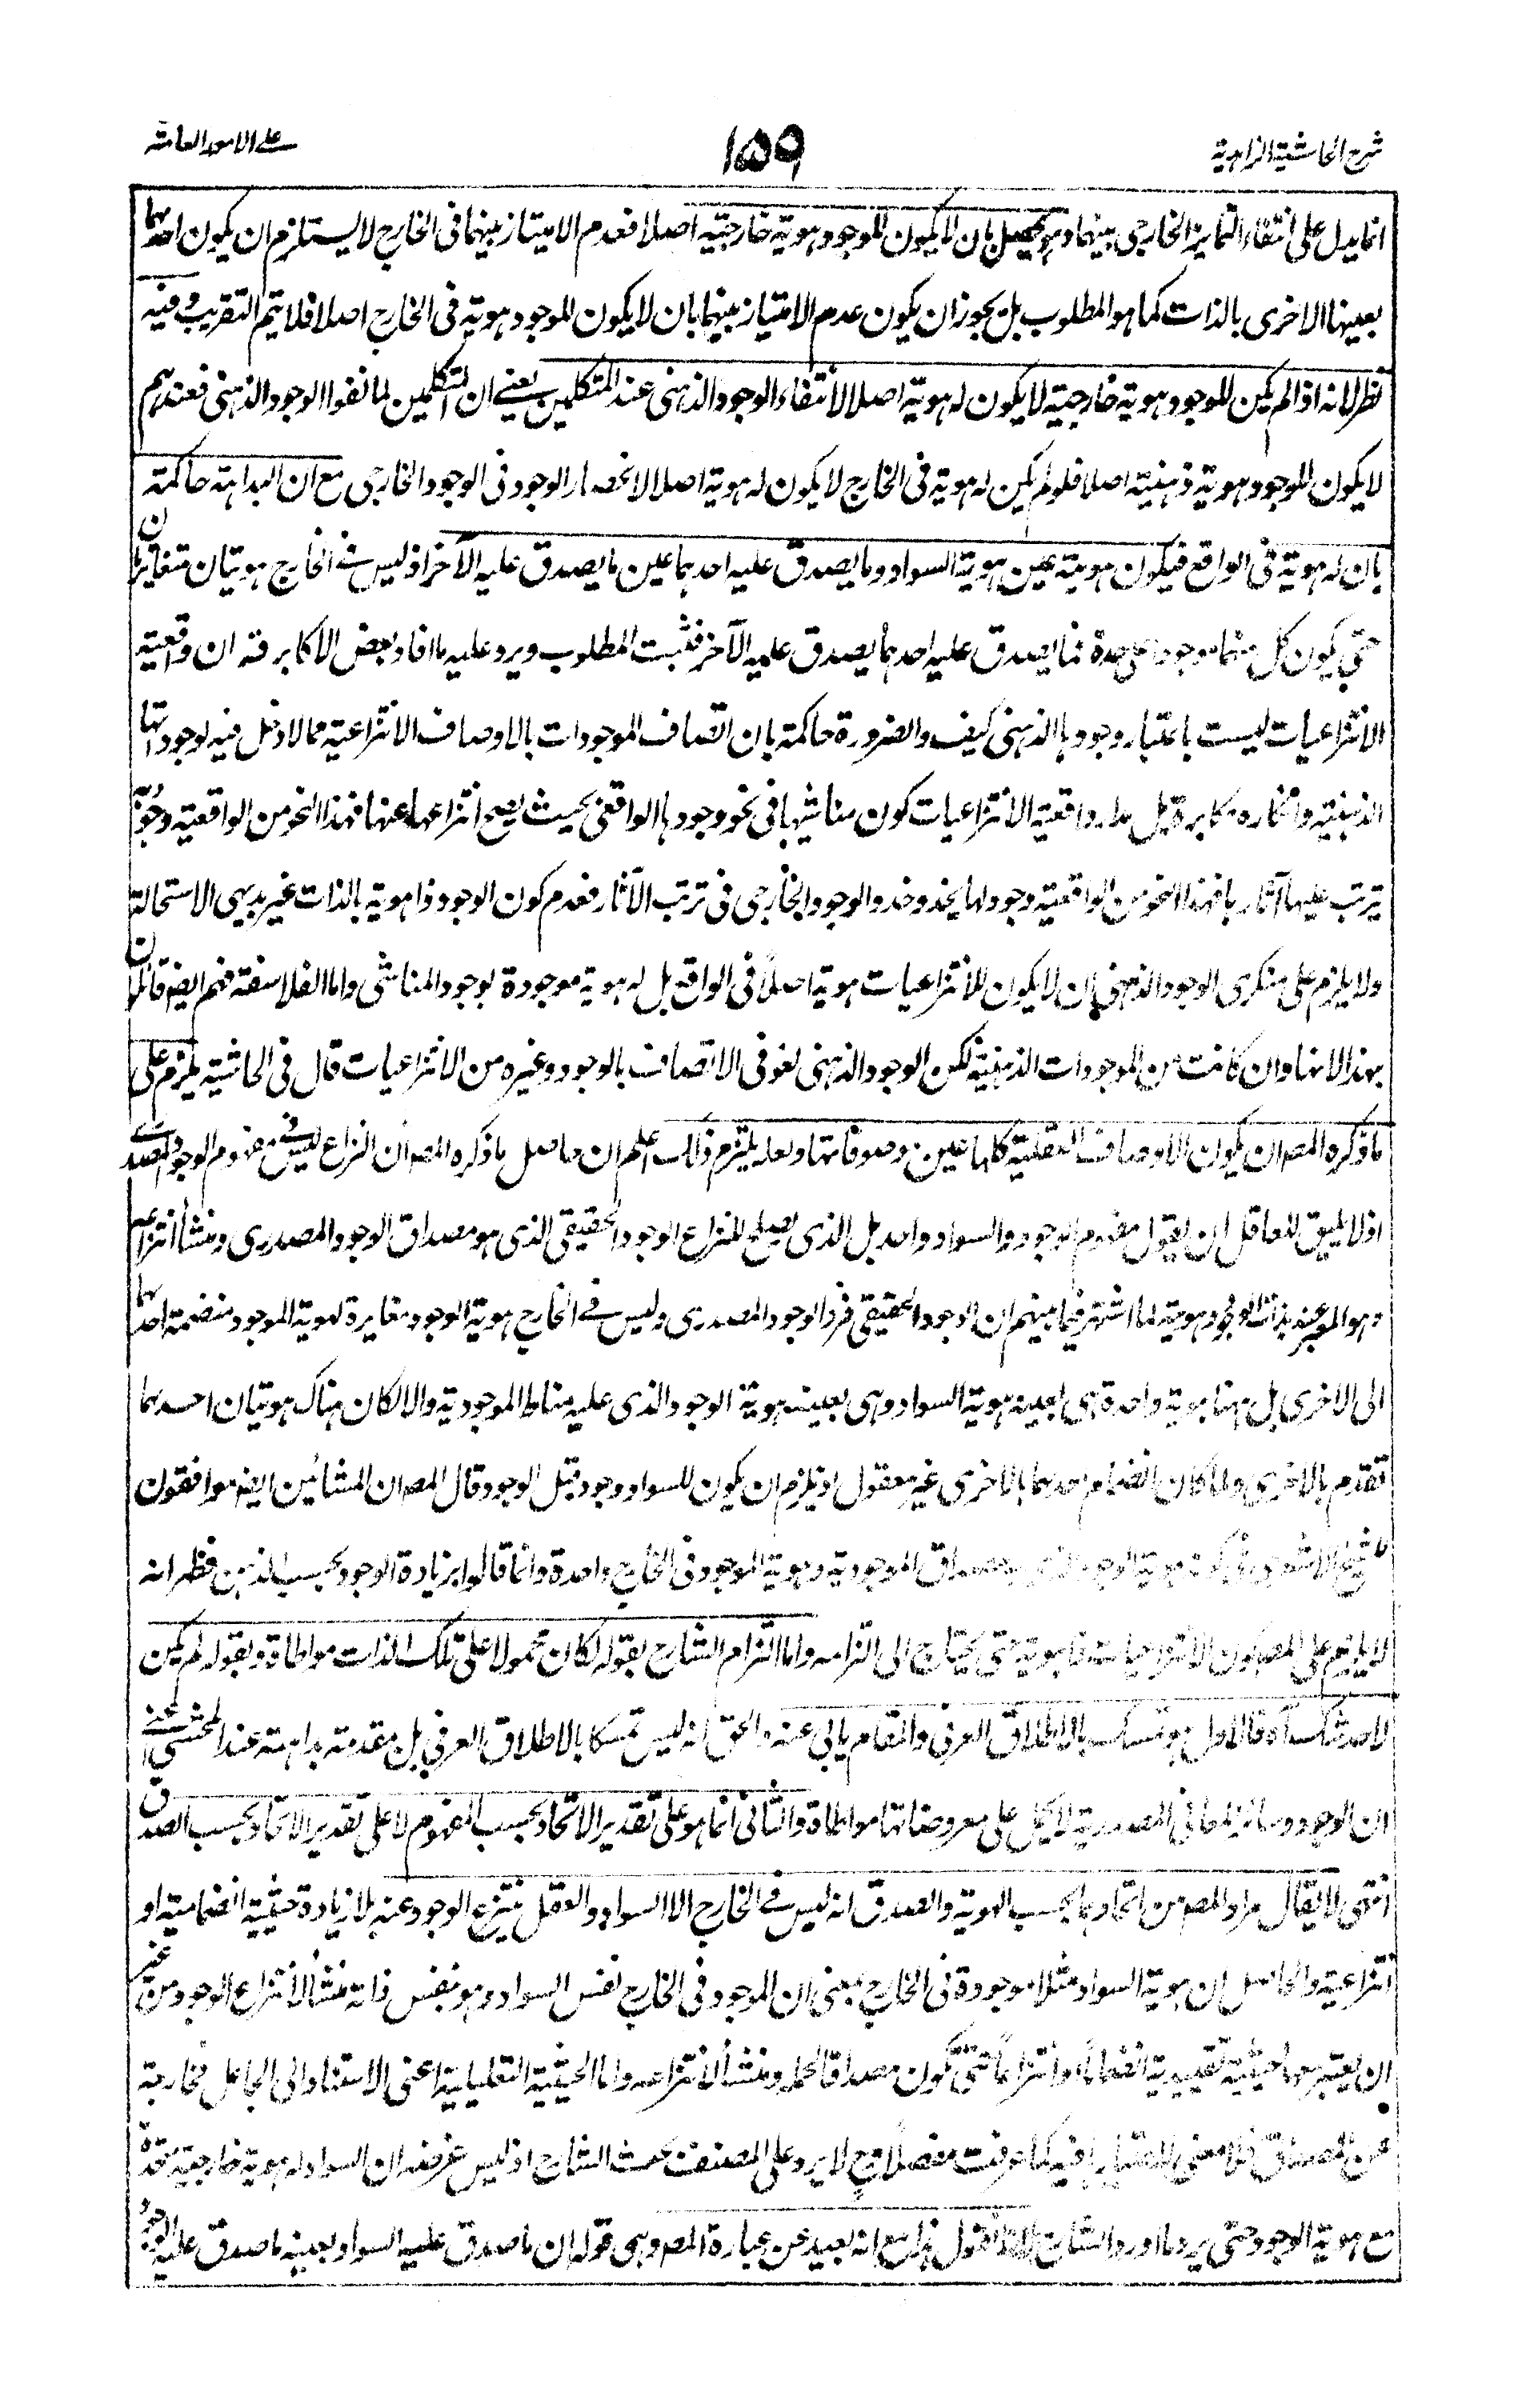 شرح الحاشية الزاهدية
١٥٩
على الامور العامة
انما يدل على انتفاء التمايز الخارجى بينهما وهو يحصل بان لا يكون للموجود هوية خارجية اصلا فعدم الامتياز بينهما فى الخارج لا يستلزم ان يكون احدهما
بعينها الاخرى بالذات كما هو المطلوب بل يجوز ان يكون عدم الامتياز بينهما بان لا يكون للموجود هوية فى الخارج اصلا فلا يتم التقريب وفيه
نظر لانه اذا لم يكن للوجود هوية خارجية لا يكون له هوية اصلا لانتفاء الوجود الذهنى عند المتكلمين يعنى ان المتكلمين لما نفوا الوجود الذهنى فعندهم
لا يكون للوجود هوية ذهنية اصلا فلو لم يكن له هوية فى الخارج لا يكون له هوية اصلا لانحصار الوجود فى الوجود الخارجى مع ان البداهة حاكمة
بان له هوية فى الواقع فيكون هويته عين هوية السواد وما يصدق عليه احدهما عين ما يصدق عليه الآخر اذ ليس فى الخارج هويتان متغايرتان
حتى يكون كل منهما موجودا على حدة فما يصدق عليه احدهما يصدق عليه الآخر فثبت المطلوب ويرد عليه ما افاد بعض الاكابر قه ان واقعية
الانتزاعيات ليست باعتبار وجودها الذهنى كيف والضرورة حاكمة بان اتصاف الموجودات بالاوصاف الانتزاعية مما لا دخل فيه لوجوداتها
الذهنية وانكاره مكابرة بل مدار واقعية الانتزاعيات كون مناشيها فى نحو وجودها الواقعى بحيث يصح انتزاعها عنها فهذا النحو من الواقعية وجود
يترتب عليها آثارها فهذا النحو من الواقعية وجود لها يحذو حذو الوجود الخارجى فى ترتب الآثار فعدم كون الوجود ذا هوية بالذات غير بديهى الاستحالة
ولا يلزم على منكرى الوجود الذهنى ان لا يكون للانتزاعيات هوية اصلا فى الواقع بل له هوية موجودة بوجود المناشى واما الفلاسفة فهم ايضا قائلون
بهذا لانها وان كانت من الموجودات الذهنية لكن الوجود الذهنى لغو فى الاتصاف بالوجود وغيره من الانتزاعيات قال فى الحاشية يلزم على
ما ذكره المصـ ان يكون الاوصاف العقلية كلها عين موصوفاتها ولعله يلتزم ذلك اعلم ان حاصل ما ذكره المصـ ان النزاع ليس فى مفهوم الوجود المصدرى
اذ لا يليق للعاقل ان يقول مفهوم الوجود والسواد واحد بل الذى يصلح للنزاع الوجود الحقيقى الذى هو مصداق الوجود المصدرى ومنشأ انتزاعه
وهو المعبر عنه بذات الوجود وهويته لما اشتهر فيما بينهم ان الوجود الحقيقى فرد الوجود المصدرى وليس فى الخارج هوية الوجود مغايرة لهوية الموجود منضمة احدهما
الى الاخرى بل ههنا هوية واحدة هى بعينه هوية السواد وهى بعينه هوية الوجود الذى عليه مناط الموجودية والا لكان هناك هويتان احدهما
تقدم بالاخرى ولما كان انضمام احدهما بالاخرى غير معقول اذ يلزم ان يكون للسواد وجود قبل الوجود قال المصـ ان المشائين ايضا موافقون
للشيخ الاشعرى فى كون هوية الوجود الذى هو مصداق الموجودية وهوية الموجود فى الخارج واحدة وانما قالوا بزيادة الوجود بحسب الذهن فظهر انه
لا يلزم على المصـ كون الانتزاعيات ذا هوية حتى يحتاج الى التزامه واما التزام الشارح بقوله لكان محمولا على تلك الذات مواطاة وبقوله لم يكن
لاحد شك آه فالاول هو تمسك بالاطلاق العرفى والمقام يابى عنه والحق انه ليس تمسكا بالاطلاق العرفى بل مقدمة بداهية عند المحشى اعنى
ان الوجود وسائر المعانى المصدرية لا يحمل على معروضاتها مواطاة والثانى انما هو على تقدير الاتحاد بحسب المفهوم لا على تقدير الاتحاد بحسب الصدق
انتهى لا يقال مراد المصـ من اتحادهما بحسب الهوية والصدق انه ليس فى الخارج الا السواد والعقل ينتزع الوجود عنه بلا زيادة حيثية انضمامية او
انتزاعية والحاصل ان هوية السواد مثلا موجودة فى الخارج بمعنى ان الموجود فى الخارج نفس السواد وهو بنفس ذاته منشأ لانتزاع الوجود من غير
ان يعتبر معها حيثية تقييدية انضماما او انتزاعا حتى تكون مصداقا لحمله ومنشأ لانتزاعه واما الحيثية التعليلية اعنى الاستناد الى الجاعل فخارجة
عن المصداق فلا معنى لاعتبارها فيه كما عرفت مفصلا وح لا يرد على المصنف بحث الشارح اذ ليس غرضه ان السواد له هوية خارجية متحدة
مع هوية الوجود حتى يرد ما اورد الشارح لانا نقول هذا مع انه بعيد عن عبارة المصـ وهى قوله ان ما صدق عليه السواد بعينه ما صدق عليه الوجود